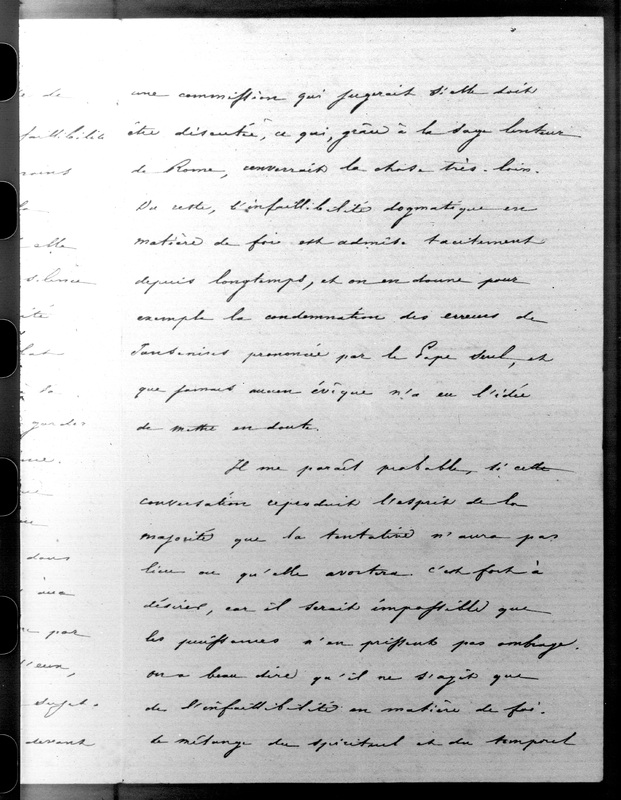 une commission qui jugerait si elle doit
être discutée, ce qui, grâce à la sage lenteur
de Rome, enverrait la chose très-loin.
Du reste, l'infaillibilité dogmatique en
matière de foi est admise tacitement
depuis longtemps, et on en donne pour
exemple la condamnation des erreurs de
Jansenius prononcée par le Pape seul, et
que jamais aucun évêque n'a eu l'idée
de mettre en doute.
Il me paraît probable, si cette
conversation reproduit l'esprit de la
majorité que la tentative n'aura pas
lieu ou qu'elle avortera. C'est fort à
désirer, car il serait impossible que
les puissances n'en prissent pas ombrage.
On a beau dire qu'il ne s'agit que
de l'infaillibilité en matière de foi.
le mélange du spirituel et du temporel
de
elle
silence
dans
par
d'eux,
sujet.
devant